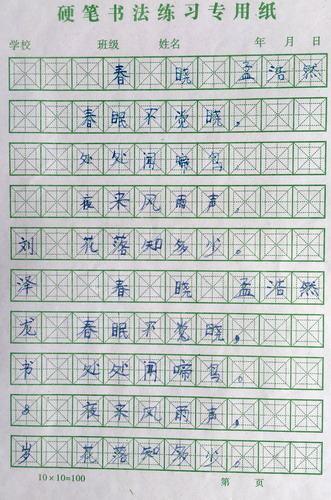 硬笔书法练习专用纸
学校 班级 姓名 年 月 日
春 晓 孟浩然
春眠不觉晓，
处处闻啼鸟。
夜来风雨声，
刘 花落知多少。
泽 春 晓 孟浩然
龙 春眠不觉晓，
书 处处闻啼鸟。
8 夜来风雨声，
岁 花落知多少。
10×10=100 第 页